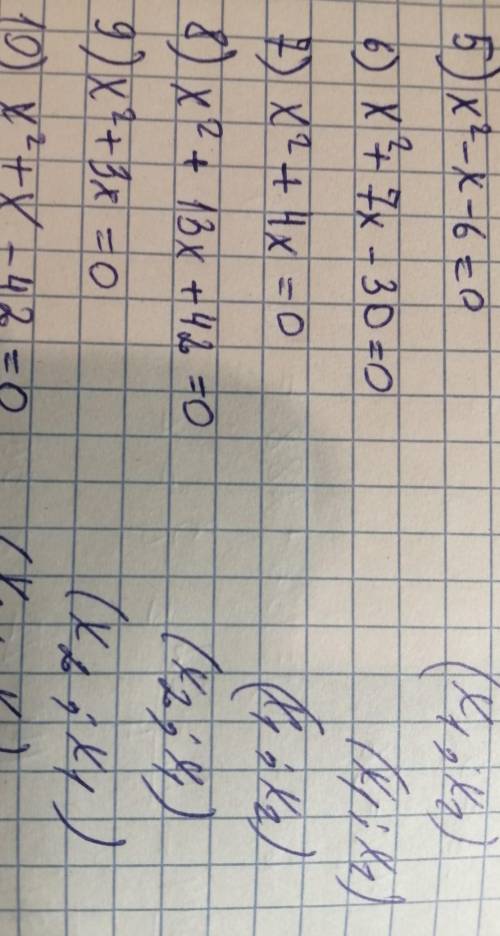 5) x² - x - 6 = 0 (x₁ ; x₂)
6) x² + 7x - 30 = 0 (x₁ ; x₂)
7) x² + 4x = 0 (x₁ ; x₂)
8) x² + 13x + 42 = 0 (x₂ ; x₁)
9) x² + 3x = 0 (x₂ ; x₁)
10) x² + x - 42 = 0